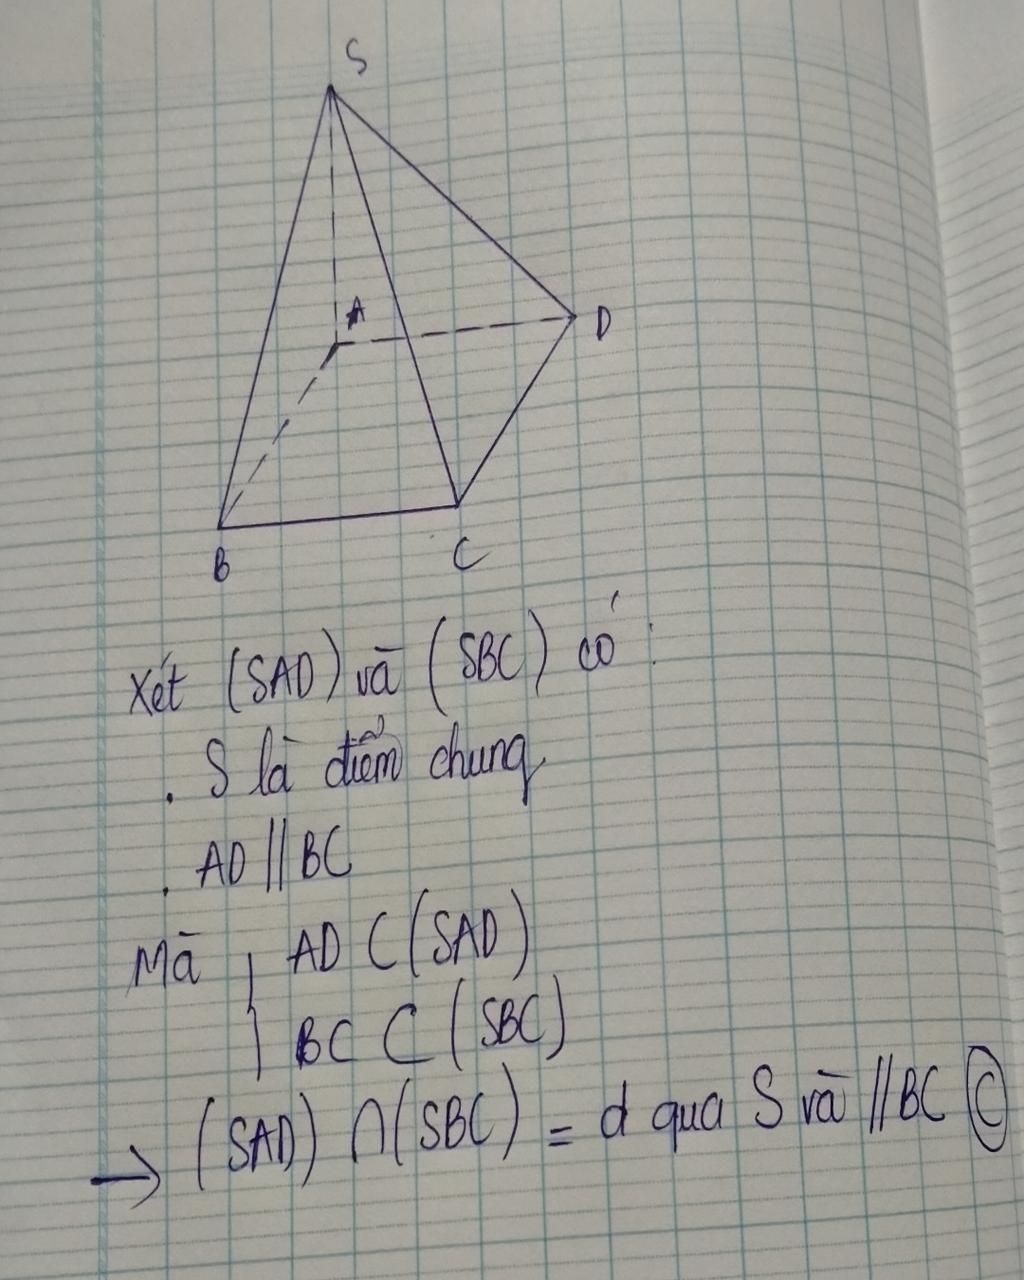 S
A
D
B
C
Xét (SAD) và (SBC) có :
. S là điểm chung
. AD // BC
Mà { AD ⊂ (SAD)
BC ⊂ (SBC)
→ (SAD) ∩ (SBC) = d qua S và // BC Ⓒ